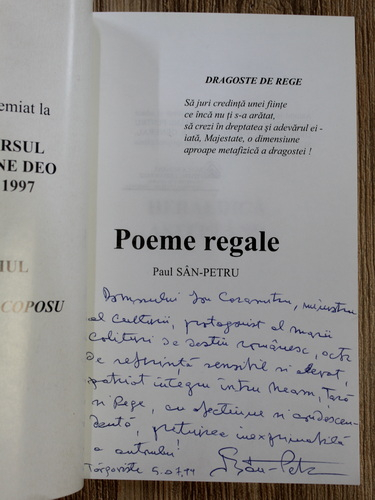 emiat la
RSUL
NE DEO
1997
IUL
COPOSU
DRAGOSTE DE REGE
Să juri credință unei ființe
ce încă nu ți s-a arătat,
să crezi în dreptatea și adevărul ei -
iată, Majestate, o dimensiune
aproape metafizică a dragostei !
Poeme regale
Paul SÂN-PETRU
Domnului Ion Caramitru, ministru
al Culturii, protagonist al marii
de destin românesc,
de referință sensibil și elevat,
patriot integru întru Neam, Țară
și Rege, cu afecțiune și condescen-
dență, prețuirea inexprimabilă
a autorului!
Târgoviște
Sân-Petru